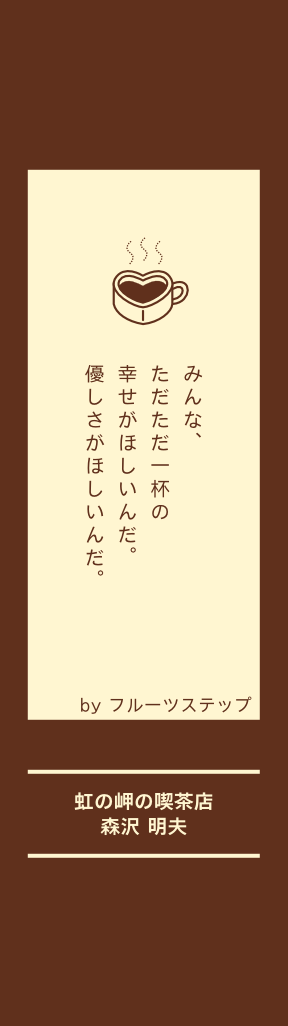 みんな、
ただただ一杯の
幸せがほしいんだ。
優しさがほしいんだ。
by フルーツステップ
虹の岬の喫茶店
森沢 明夫